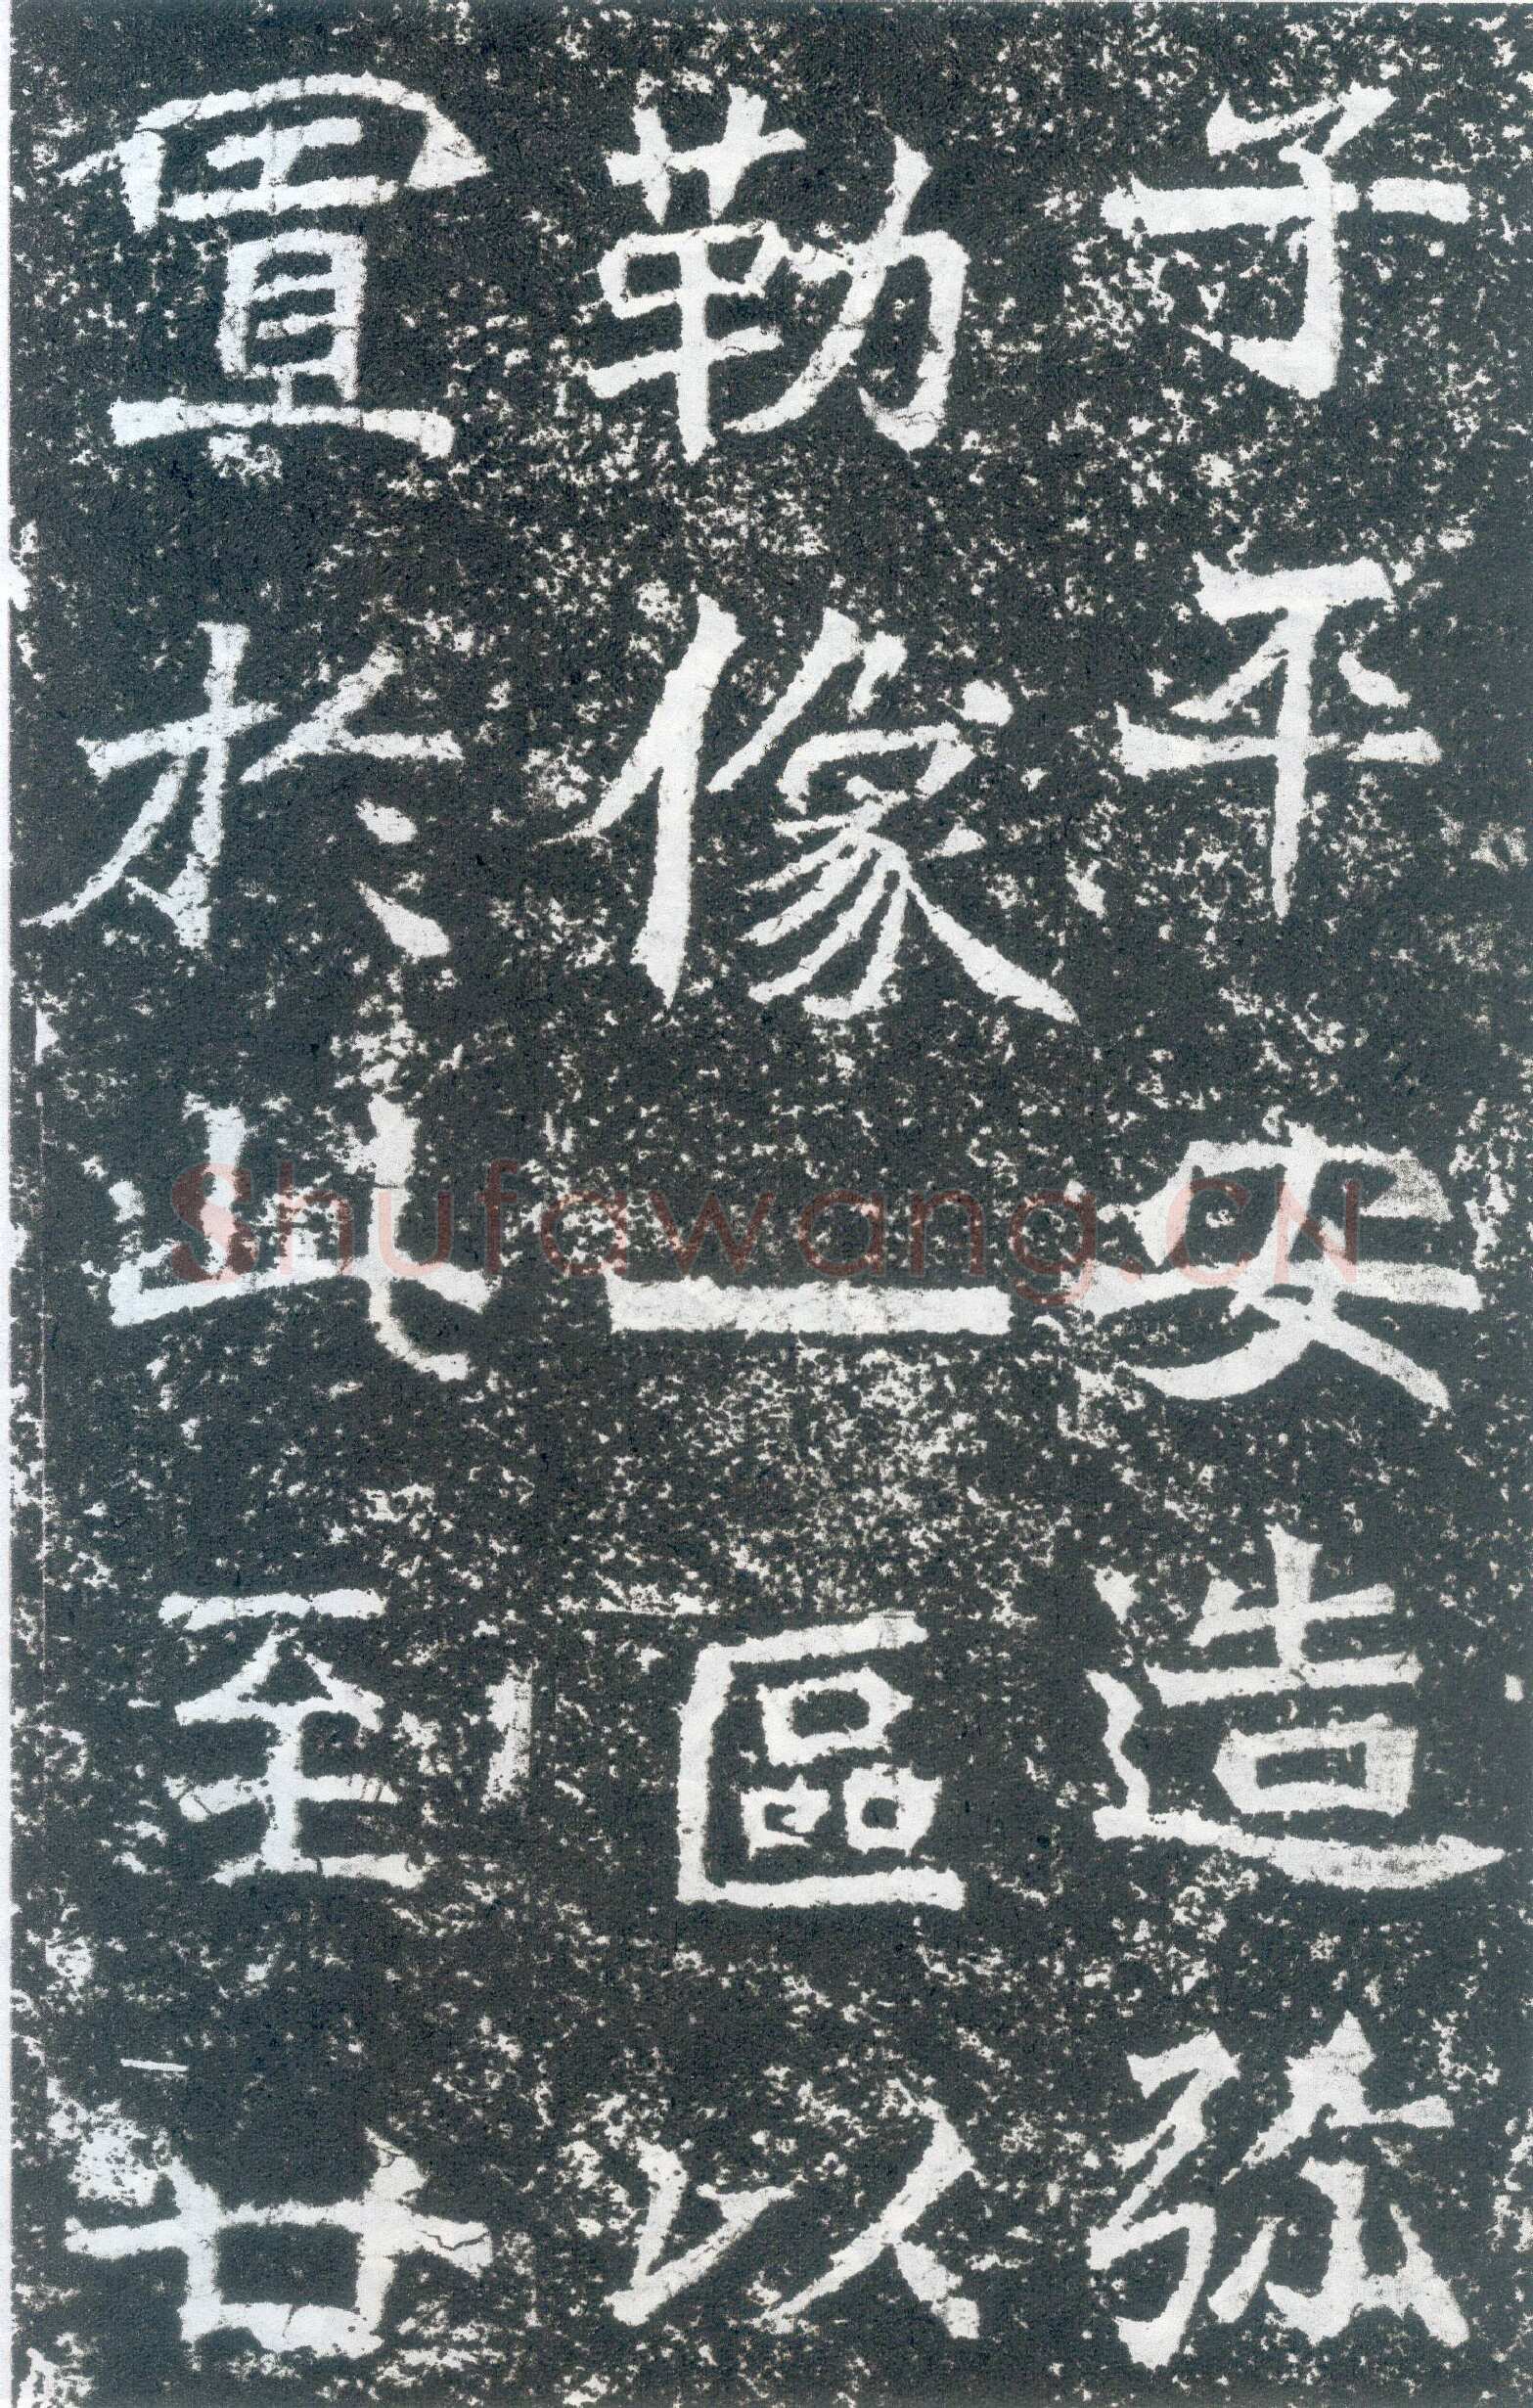 子平安造弥
勒像一區以
置於此至廿
Shufawang.CN